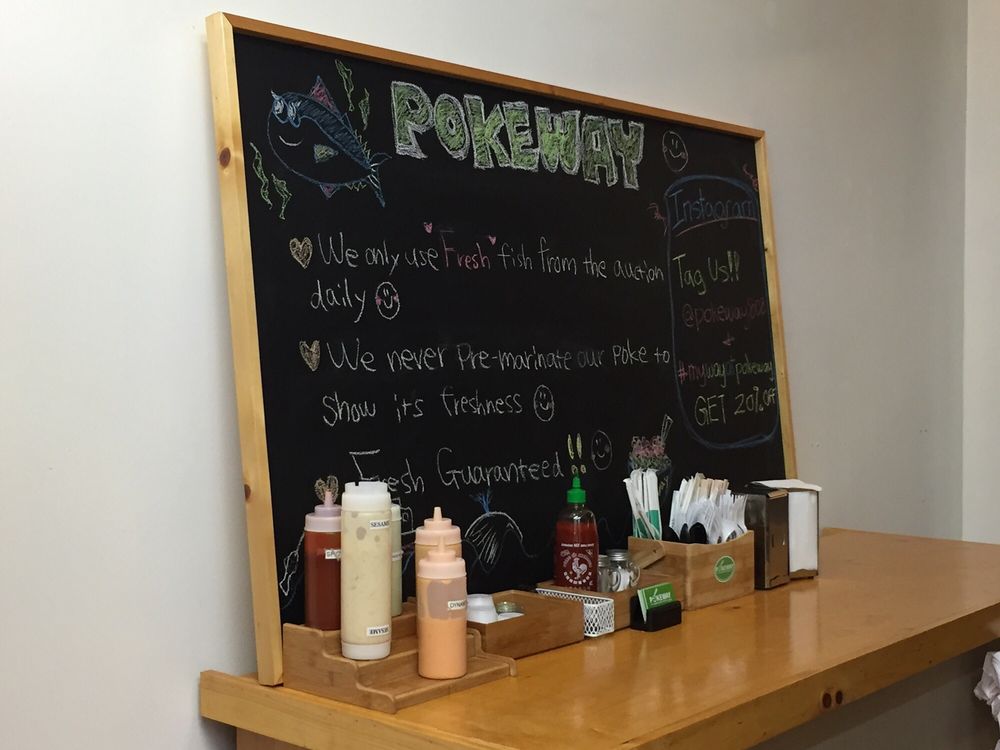 POKEWAY
We only use Fresh fish from the auction
daily
We never Pre-marinate our Poke to
show its freshness
Fresh Guaranteed!!
Instagram
Tag Us!!
@pokeway808
+
#mywayatpokeway
GET 20% OFF
SESAME
SESAME
DYNAM
POKEWAY